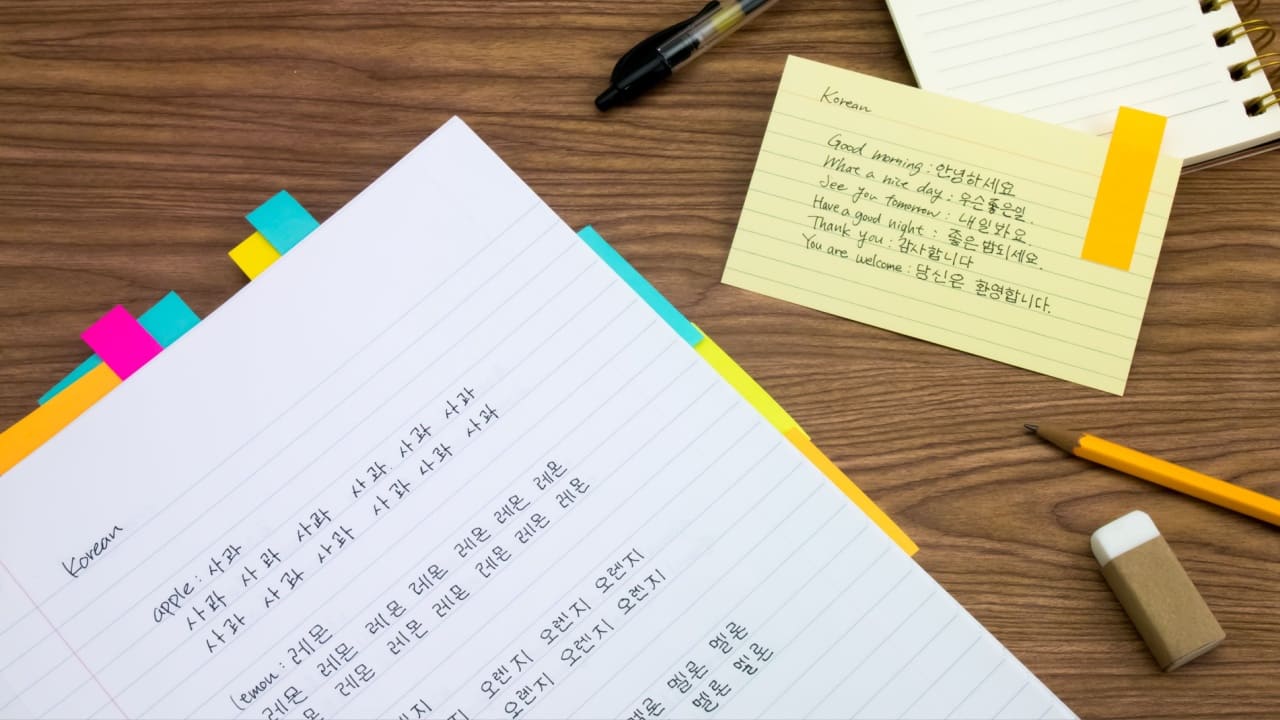 Korean
Good morning : 안녕하세요
What a nice day : 우슨좋은일
See you tomorrow : 내일봐요.
Have a good night : 좋은밤되세요.
Thank you : 감사합니다
You are welcome : 당신은 환영합니다.
Korean
apple : 사과
사과 사과 사과 사과. 사과 사과
사과 사과 사과 사과 사과 사과
lemon : 레몬
레몬 레몬 레몬 레몬 레몬 레몬 레몬
레몬 레몬 레몬 레몬 레몬 레몬
오렌지 오렌지 오렌지
오렌지 오렌지 오렌지
멜론 멜론
멜론 멜론